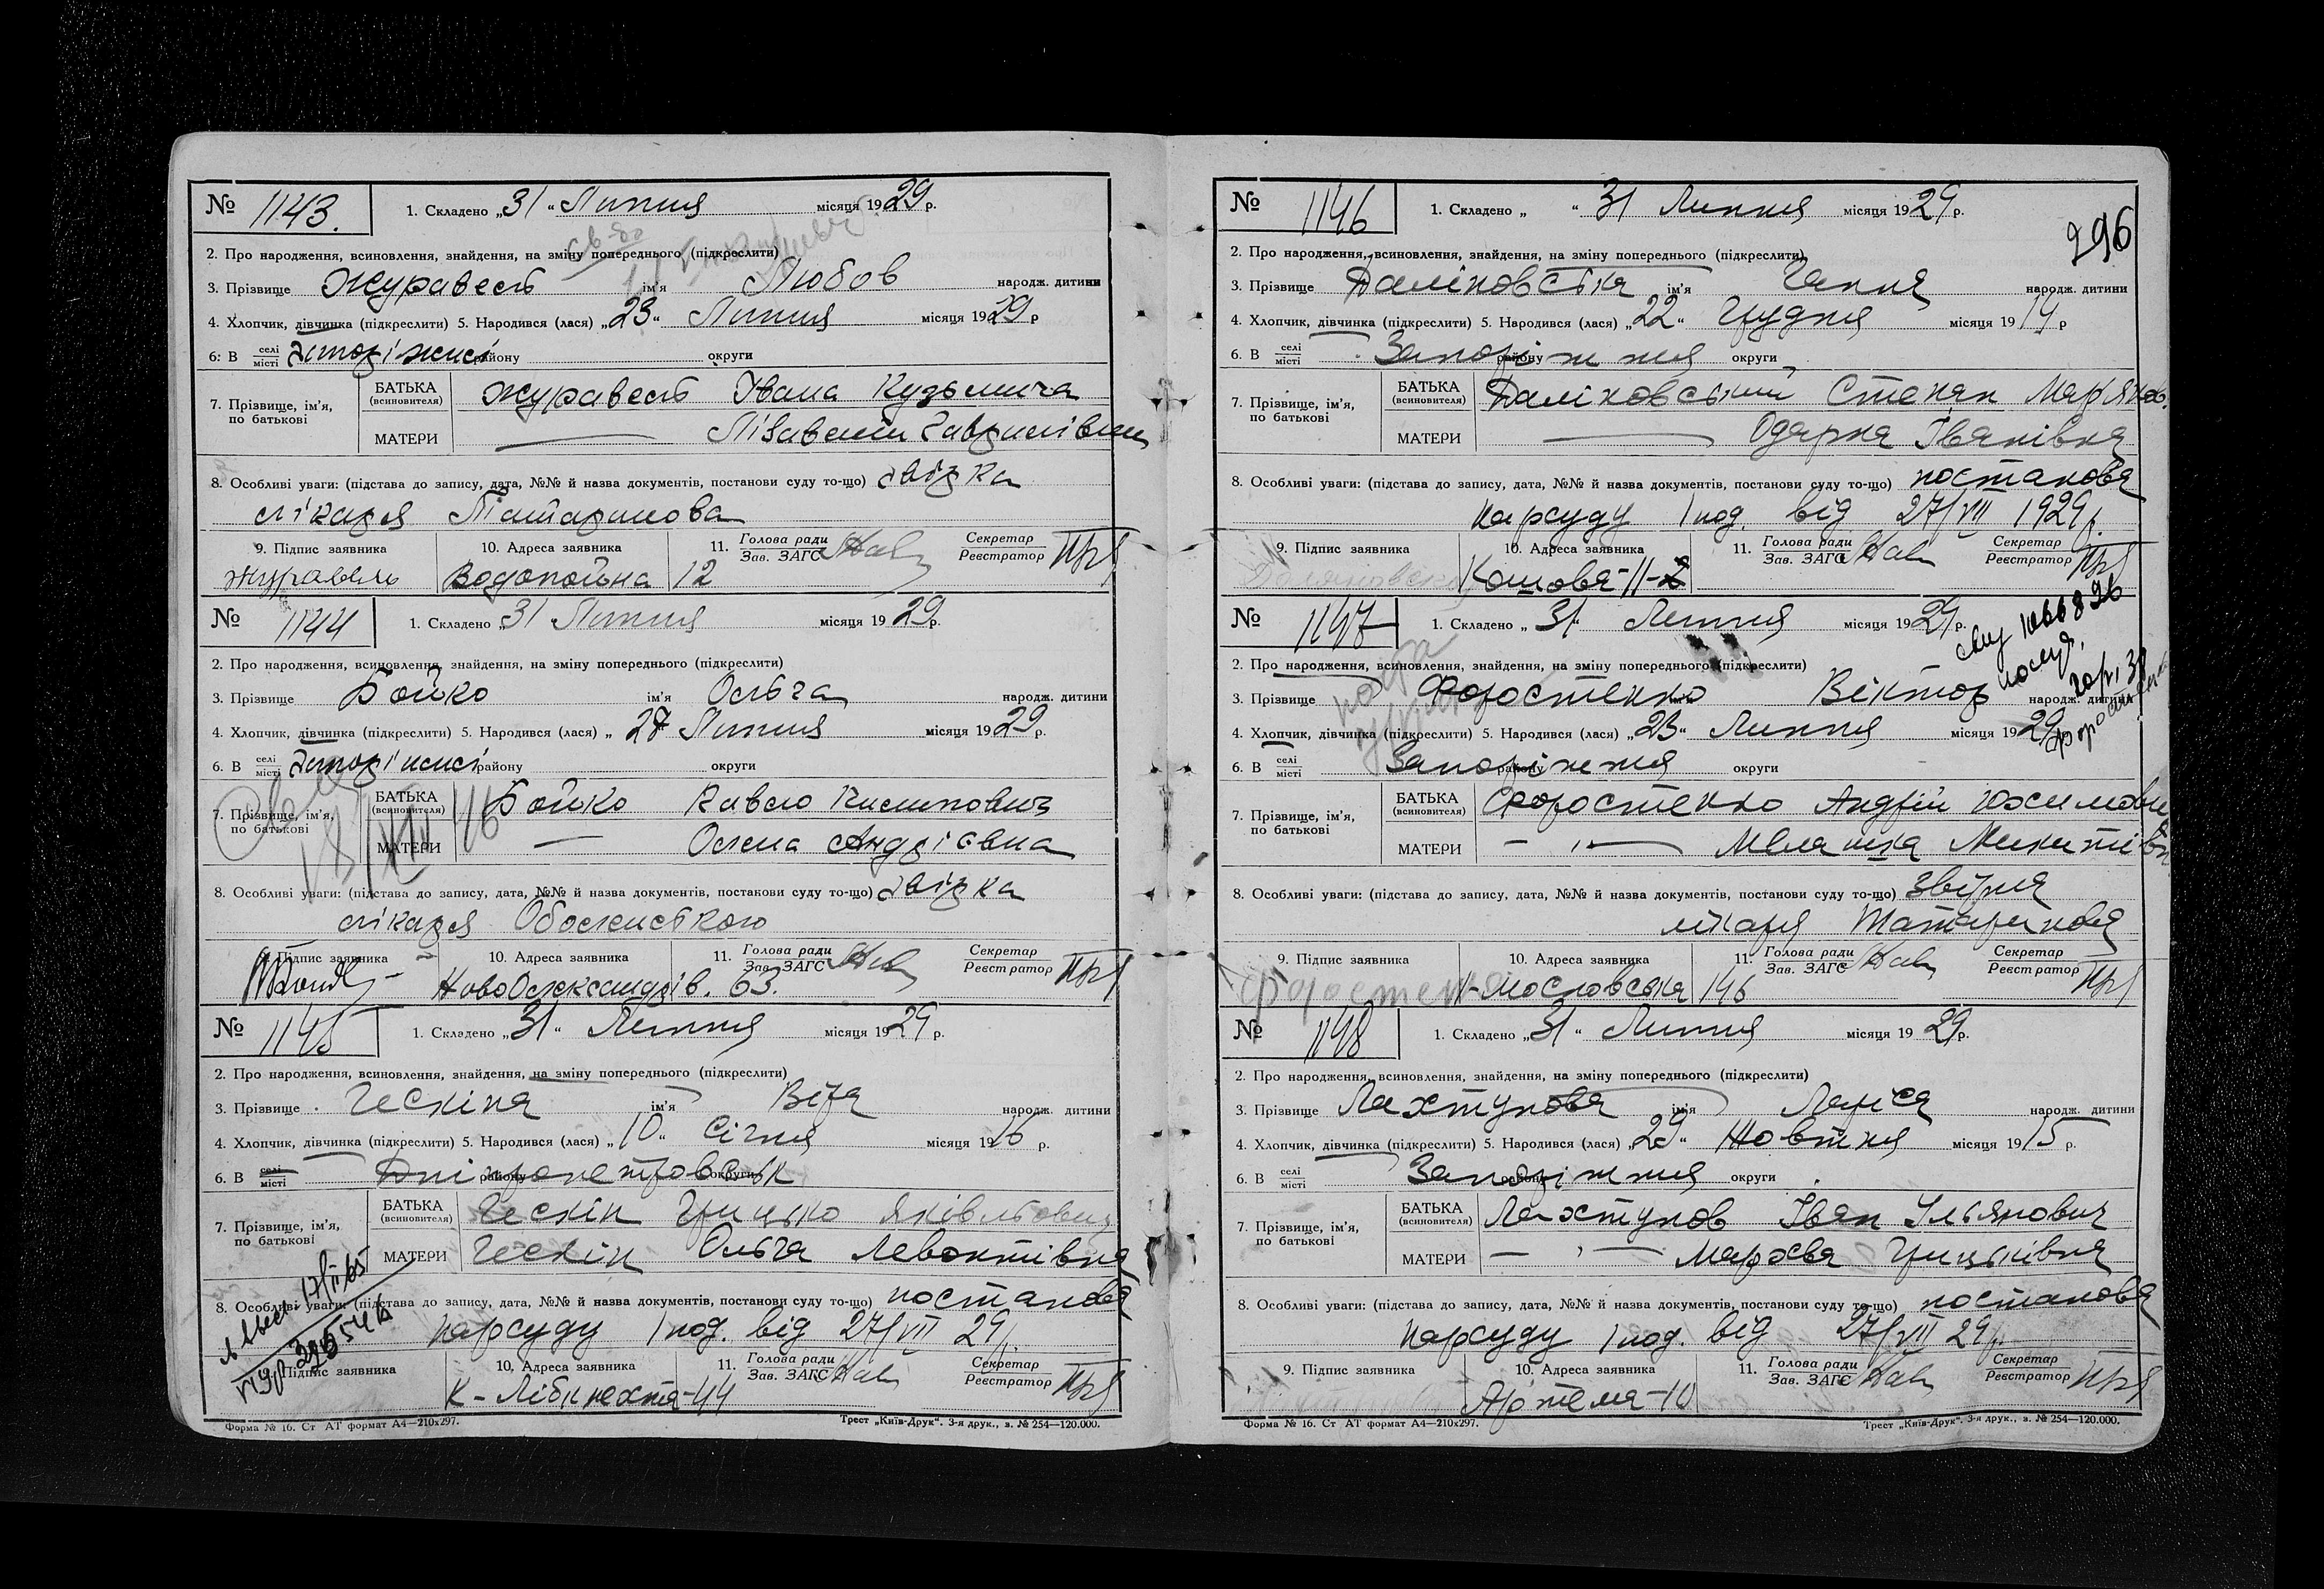 № 1143. 1. Складено „31“ Липня місяця 1929 р.
2. Про народження, всиновлення, знайдення, на зміну попереднього (підкреслити)
3. Прізвище Журавель ім'я Любов народж. дитини
4. Хлопчик, дівчинка (підкреслити) 5. Народився (лася) „23“ Липня місяця 1929 р
6. В селі місті Запоріжжі району округи
7. Прізвище, ім'я, по батькові
БАТЬКА (всиновителя) Журавель Івана Кузьмича
МАТЕРИ — Лізавети Гаврилівни
8. Особливі уваги: (підстава до запису, дата, №№ й назва документів, постанови суду то-що) звізка
лікаря Татаринова
9. Підпис заявника 10. Адреса заявника 11. Голова ради Зав. ЗАГС Секретар Реєстратор
Журавель Водопойна 12
№ 1144 1. Складено „31 Липня місяця 1929 р.
2. Про народження, всиновлення, знайдення, на зміну попереднього (підкреслити)
3. Прізвище Бойко ім'я Ольга народж. дитини
4. Хлопчик, дівчинка (підкреслити) 5. Народився (лася) „ 27 Липня місяця 1929 р.
6. В селі місті Запоріжжі району округи
7. Прізвище, ім'я, по батькові
БАТЬКА (всиновителя) Бойко Павло Пилипович
МАТЕРИ — Олена Андріевна
8. Особливі уваги: (підстава до запису, дата, №№ й назва документів, постанови суду то-що) звізка
лікаря
9. Підпис заявника 10. Адреса заявника 11. Голова ради Зав. ЗАГС Секретар Реєстратор
НовоОлександрів. 63.
№ 1145 1. Складено „31“ Липня місяця 1929 р.
2. Про народження, всиновлення, знайдення, на зміну попереднього (підкреслити)
3. Прізвище Ческіна ім'я Віра народж. дитини
4. Хлопчик, дівчинка (підкреслити) 5. Народився (лася) „10“ Січня місяця 1916 р.
6. В селі місті Дніпропетровськ району округи
7. Прізвище, ім'я, по батькові
БАТЬКА (всиновителя) Ческін Грицько Яківльович
МАТЕРИ Ческін Ольга Левонтівна
8. Особливі уваги: (підстава до запису, дата, №№ й назва документів, постанови суду то-що) постанова
нарсуду 1 под. від 27/VII 29 р.
9. Підпис заявника 10. Адреса заявника 11. Голова ради Зав. ЗАГС Секретар Реєстратор
К-Лібкнехта-44
Форма № 16. Ст АТ формат А4—210х297. Трест „Київ-Друк“. 3-я друк., з. № 254—120.000.
296
№ 1146 1. Складено „ “ 31 Липня місяця 1929 р.
2. Про народження, всиновлення, знайдення, на зміну попереднього (підкреслити)
3. Прізвище Даліновська ім'я Ганна народж. дитини
4. Хлопчик, дівчинка (підкреслити) 5. Народився (лася) „22“ Грудня місяця 1914 р
6. В селі місті Запоріжжя району округи
7. Прізвище, ім'я, по батькові
БАТЬКА (всиновителя) Даліновський Степан Мар'янов.
МАТЕРИ — Одарка Іванівна
8. Особливі уваги: (підстава до запису, дата, №№ й назва документів, постанови суду то-що) постанова
нарсуду 1 под. від 27/VII 1929 р.
9. Підпис заявника 10. Адреса заявника 11. Голова ради Зав. ЗАГС Секретар Реєстратор
Кошова-11-2
№ 1147 1. Складено „31“ Липня місяця 1929 р.
2. Про народження, всиновлення, знайдення, на зміну попереднього (підкреслити)
3. Прізвище Форостенко ім'я Віктор народж. дитини
4. Хлопчик, дівчинка (підкреслити) 5. Народився (лася) „23“ Липня місяця 1929
6. В селі місті Запоріжжя району округи
7. Прізвище, ім'я, по батькові
БАТЬКА (всиновителя) Форостенко Андрій Юхимович
МАТЕРИ — „ — Мелашка Микитівн
8. Особливі уваги: (підстава до запису, дата, №№ й назва документів, постанови суду то-що)
лікаря Татаринова
9. Підпис заявника 10. Адреса заявника 11. Голова ради Зав. ЗАГС Секретар Реєстратор
Н-Московська 146
№ 1148 1. Складено „31“ Липня місяця 1929 р.
2. Про народження, всиновлення, знайдення, на зміну попереднього (підкреслити)
3. Прізвище Лахтунова ім'я Лариса народж. дитини
4. Хлопчик, дівчинка (підкреслити) 5. Народився (лася) „29“ Жовтня місяця 1915 р.
6. В селі місті Запоріжжя району округи
7. Прізвище, ім'я, по батькові
БАТЬКА (всиновителя) Лахтунов Іван Ульянович
МАТЕРИ — „ — Марфа Грицьківна
8. Особливі уваги: (підстава до запису, дата, №№ й назва документів, постанови суду то-що) постанова
нарсуду 1 под. від 27/VII 29 р.
9. Підпис заявника 10. Адреса заявника 11. Голова ради Зав. ЗАГС Секретар Реєстратор
Артема-10
Форма № 16. Ст АТ формат А4—210х297. Трест „Київ-Друк“. 3-я друк., з. № 254—120.000.